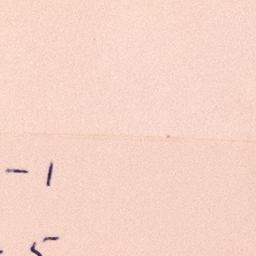 - 1
- 5